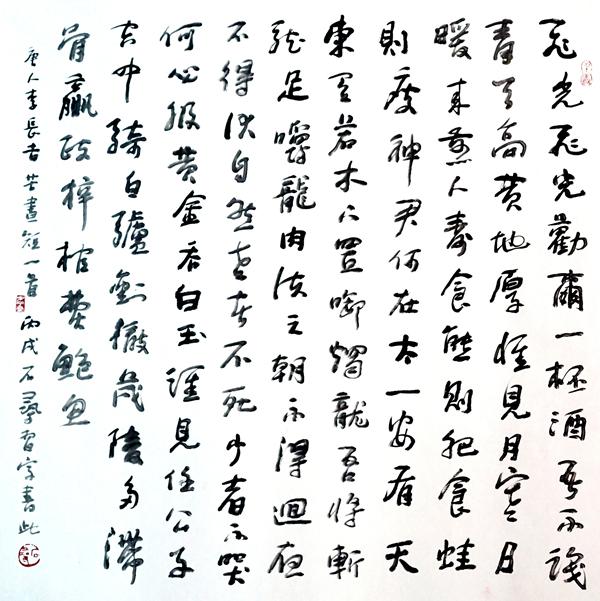 飛光飛光勸爾一杯酒吾不識
青天高黃地厚惟見月寒日
暖来煎人壽食熊則肥食蛙
則瘦神君何在太一安有天
東有若木下置啣燭龍吾將斬
龍足嚼龍肉使之朝不得迴夜
不得伏自然老者不死少者不哭
何必服黃金吞白玉誰見任公子
雲中騎白驢劉徹茂陵多滯
骨嬴政梓棺費鮑魚
唐人李長吉苦晝短一首 丙戌石尋習字書此